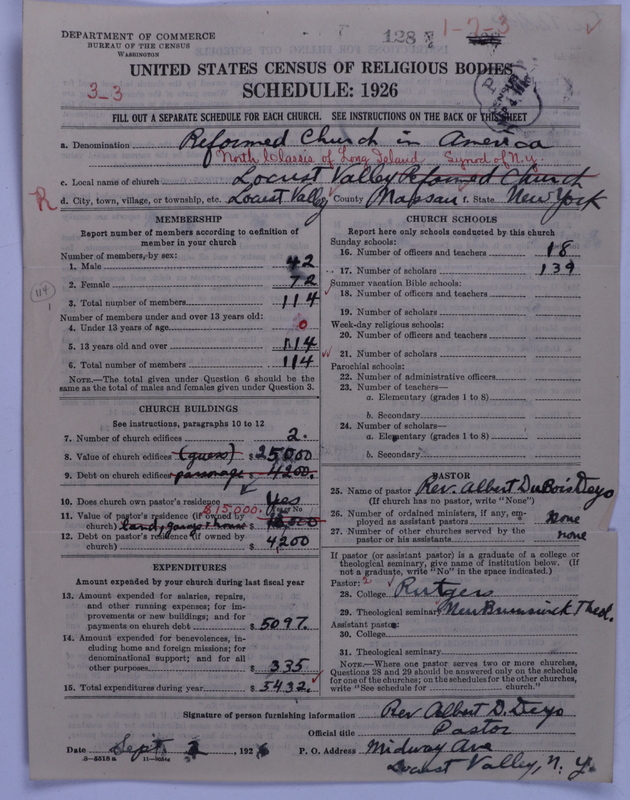 DEPARTMENT OF COMMERCE
BUREAU OF THE CENSUS
WASHINGTON
128
1-7-3
UNITED STATES CENSUS OF RELIGIOUS BODIES
3-3
SCHEDULE: 1926
FILL OUT A SEPARATE SCHEDULE FOR EACH CHURCH. SEE INSTRUCTIONS ON THE BACK OF THIS SHEET
a. Denomination Reformed Church in America
North Classis of Long Island Synod of N.Y.
c. Local name of church Locust Valley Reformed Church
R d. City, town, village, or township, etc. Locust Valley County Nassau f. State New York
MEMBERSHIP
Report number of members according to definition of member in your church
Number of members, by sex:
1. Male 42
2. Female 72
3. Total number of members 114
114
Number of members under and over 13 years old:
4. Under 13 years of age 0
5. 13 years old and over 114
6. Total number of members 114
NOTE.—The total given under Question 6 should be the
same as the total of males and females given under Question 3.
CHURCH BUILDINGS
See instructions, paragraphs 10 to 12
7. Number of church edifices 2.
8. Value of church edifices (guess) $ 25000
9. Debt on church edifices parsonage $ 4200.
10. Does church own pastor's residence Yes
Yes or No
$15000.
11. Value of pastor's residence (if owned by
church) land, garage + house $
12. Debt on pastor's residence (if owned by
church) $ 4200
EXPENDITURES
Amount expended by your church during last fiscal year
13. Amount expended for salaries, repairs,
and other running expenses; for im-
provements or new buildings; and for
payments on church debt $ 5097.
14. Amount expended for benevolences, in-
cluding home and foreign missions; for
denominational support; and for all
other purposes $ 335.
15. Total expenditures during year $ 5432.
CHURCH SCHOOLS
Report here only schools conducted by this church
Sunday schools:
16. Number of officers and teachers 18
17. Number of scholars 139
Summer vacation Bible schools:
18. Number of officers and teachers
19. Number of scholars
Week-day religious schools:
20. Number of officers and teachers
21. Number of scholars
Parochial schools:
22. Number of administrative officers
23. Number of teachers—
a. Elementary (grades 1 to 8)
b. Secondary
24. Number of scholars—
a. Elementary (grades 1 to 8)
b. Secondary
PASTOR
25. Name of pastor Rev. Albert DuBois Deyo
(If church has no pastor, write "None")
26. Number of ordained ministers, if any, em-
ployed as assistant pastors none
27. Number of other churches served by the
pastor or his assistants none
If pastor (or assistant pastor) is a graduate of a college or
theological seminary, give name of institution below. (If
not a graduate, write "No" in the space indicated.)
Pastor: 2
28. College Rutgers
29. Theological seminary New Brunswick Theol.
Assistant pastor:
30. College
31. Theological seminary
NOTE.—Where one pastor serves two or more churches,
Questions 28 and 29 should be answered only on the schedule
for one of the churches; on the schedules for the other churches,
write "See schedule for church."
Signature of person furnishing information Rev Albert D. Deyo
Official title Pastor
Date Sept 2, 1926 P. O. Address Midway Ave
Locust Valley, N. Y.